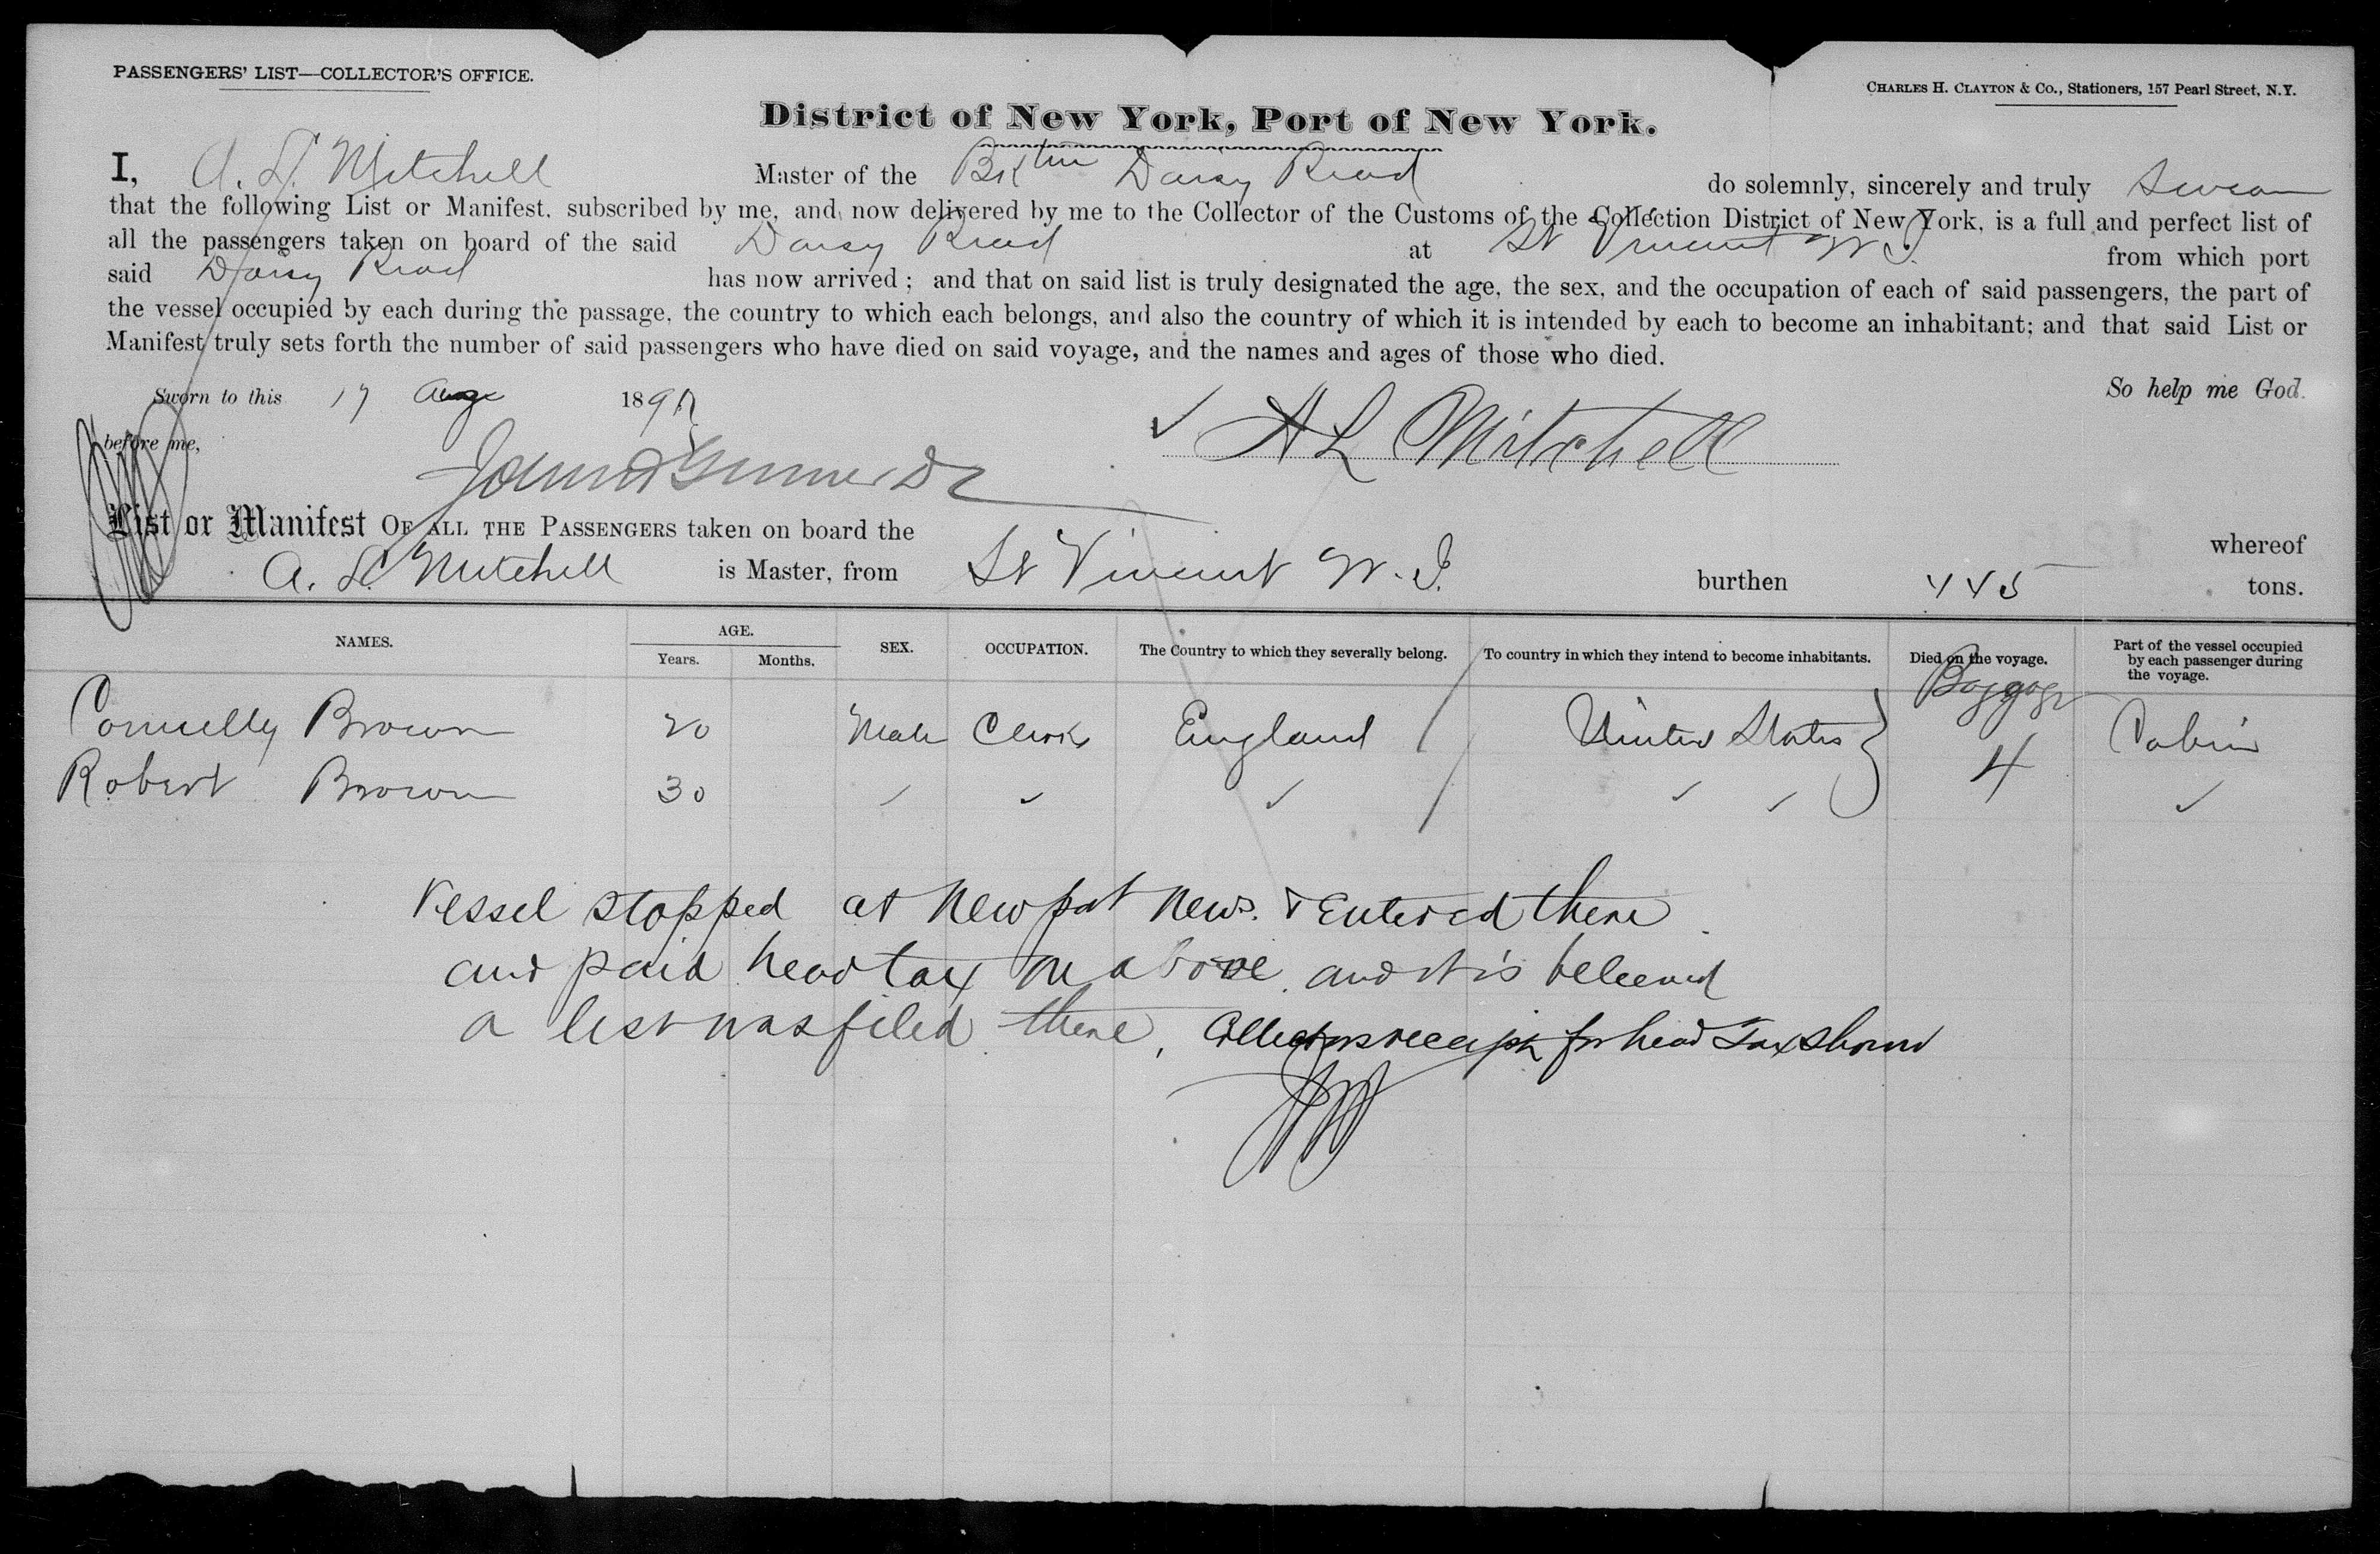 PASSENGERS' LIST—COLLECTOR'S OFFICE.
CHARLES H. CLAYTON & Co., Stationers, 157 Pearl Street, N.Y.
District of New York, Port of New York.
I, A. L. Mitchell Master of the Bktn Daisy Read do solemnly, sincerely and truly swear
that the following List or Manifest, subscribed by me, and now delivered by me to the Collector of the Customs of the Collection District of New York, is a full and perfect list of
all the passengers taken on board of the said Daisy Read at St Vincent W. I. from which port
said Daisy Read has now arrived; and that on said list is truly designated the age, the sex, and the occupation of each of said passengers, the part of
the vessel occupied by each during the passage, the country to which each belongs, and also the country of which it is intended by each to become an inhabitant; and that said List or
Manifest truly sets forth the number of said passengers who have died on said voyage, and the names and ages of those who died.
So help me God.
Sworn to this 17 Aug 189
before me,
A L Mitchell
List or Manifest OF ALL THE PASSENGERS taken on board the whereof
A. L. Mitchell is Master, from St Vincent W. I. burthen 445 tons.
NAMES. AGE. SEX. OCCUPATION. The Country to which they severally belong. To country in which they intend to become inhabitants. Died on the voyage. Part of the vessel occupied by each passenger during the voyage.
Years. Months.
Baggage
Connelly Brown 20 Male Clerk England / United States } 4 Cabin
Robert Brown 30 ✓ ✓ ✓ / ✓ ✓ ✓
Vessel stopped at Newport News. & Entered there
and paid head tax on above. and it is beleeved
a list was filed there, Collectors receipt for head Tax shown